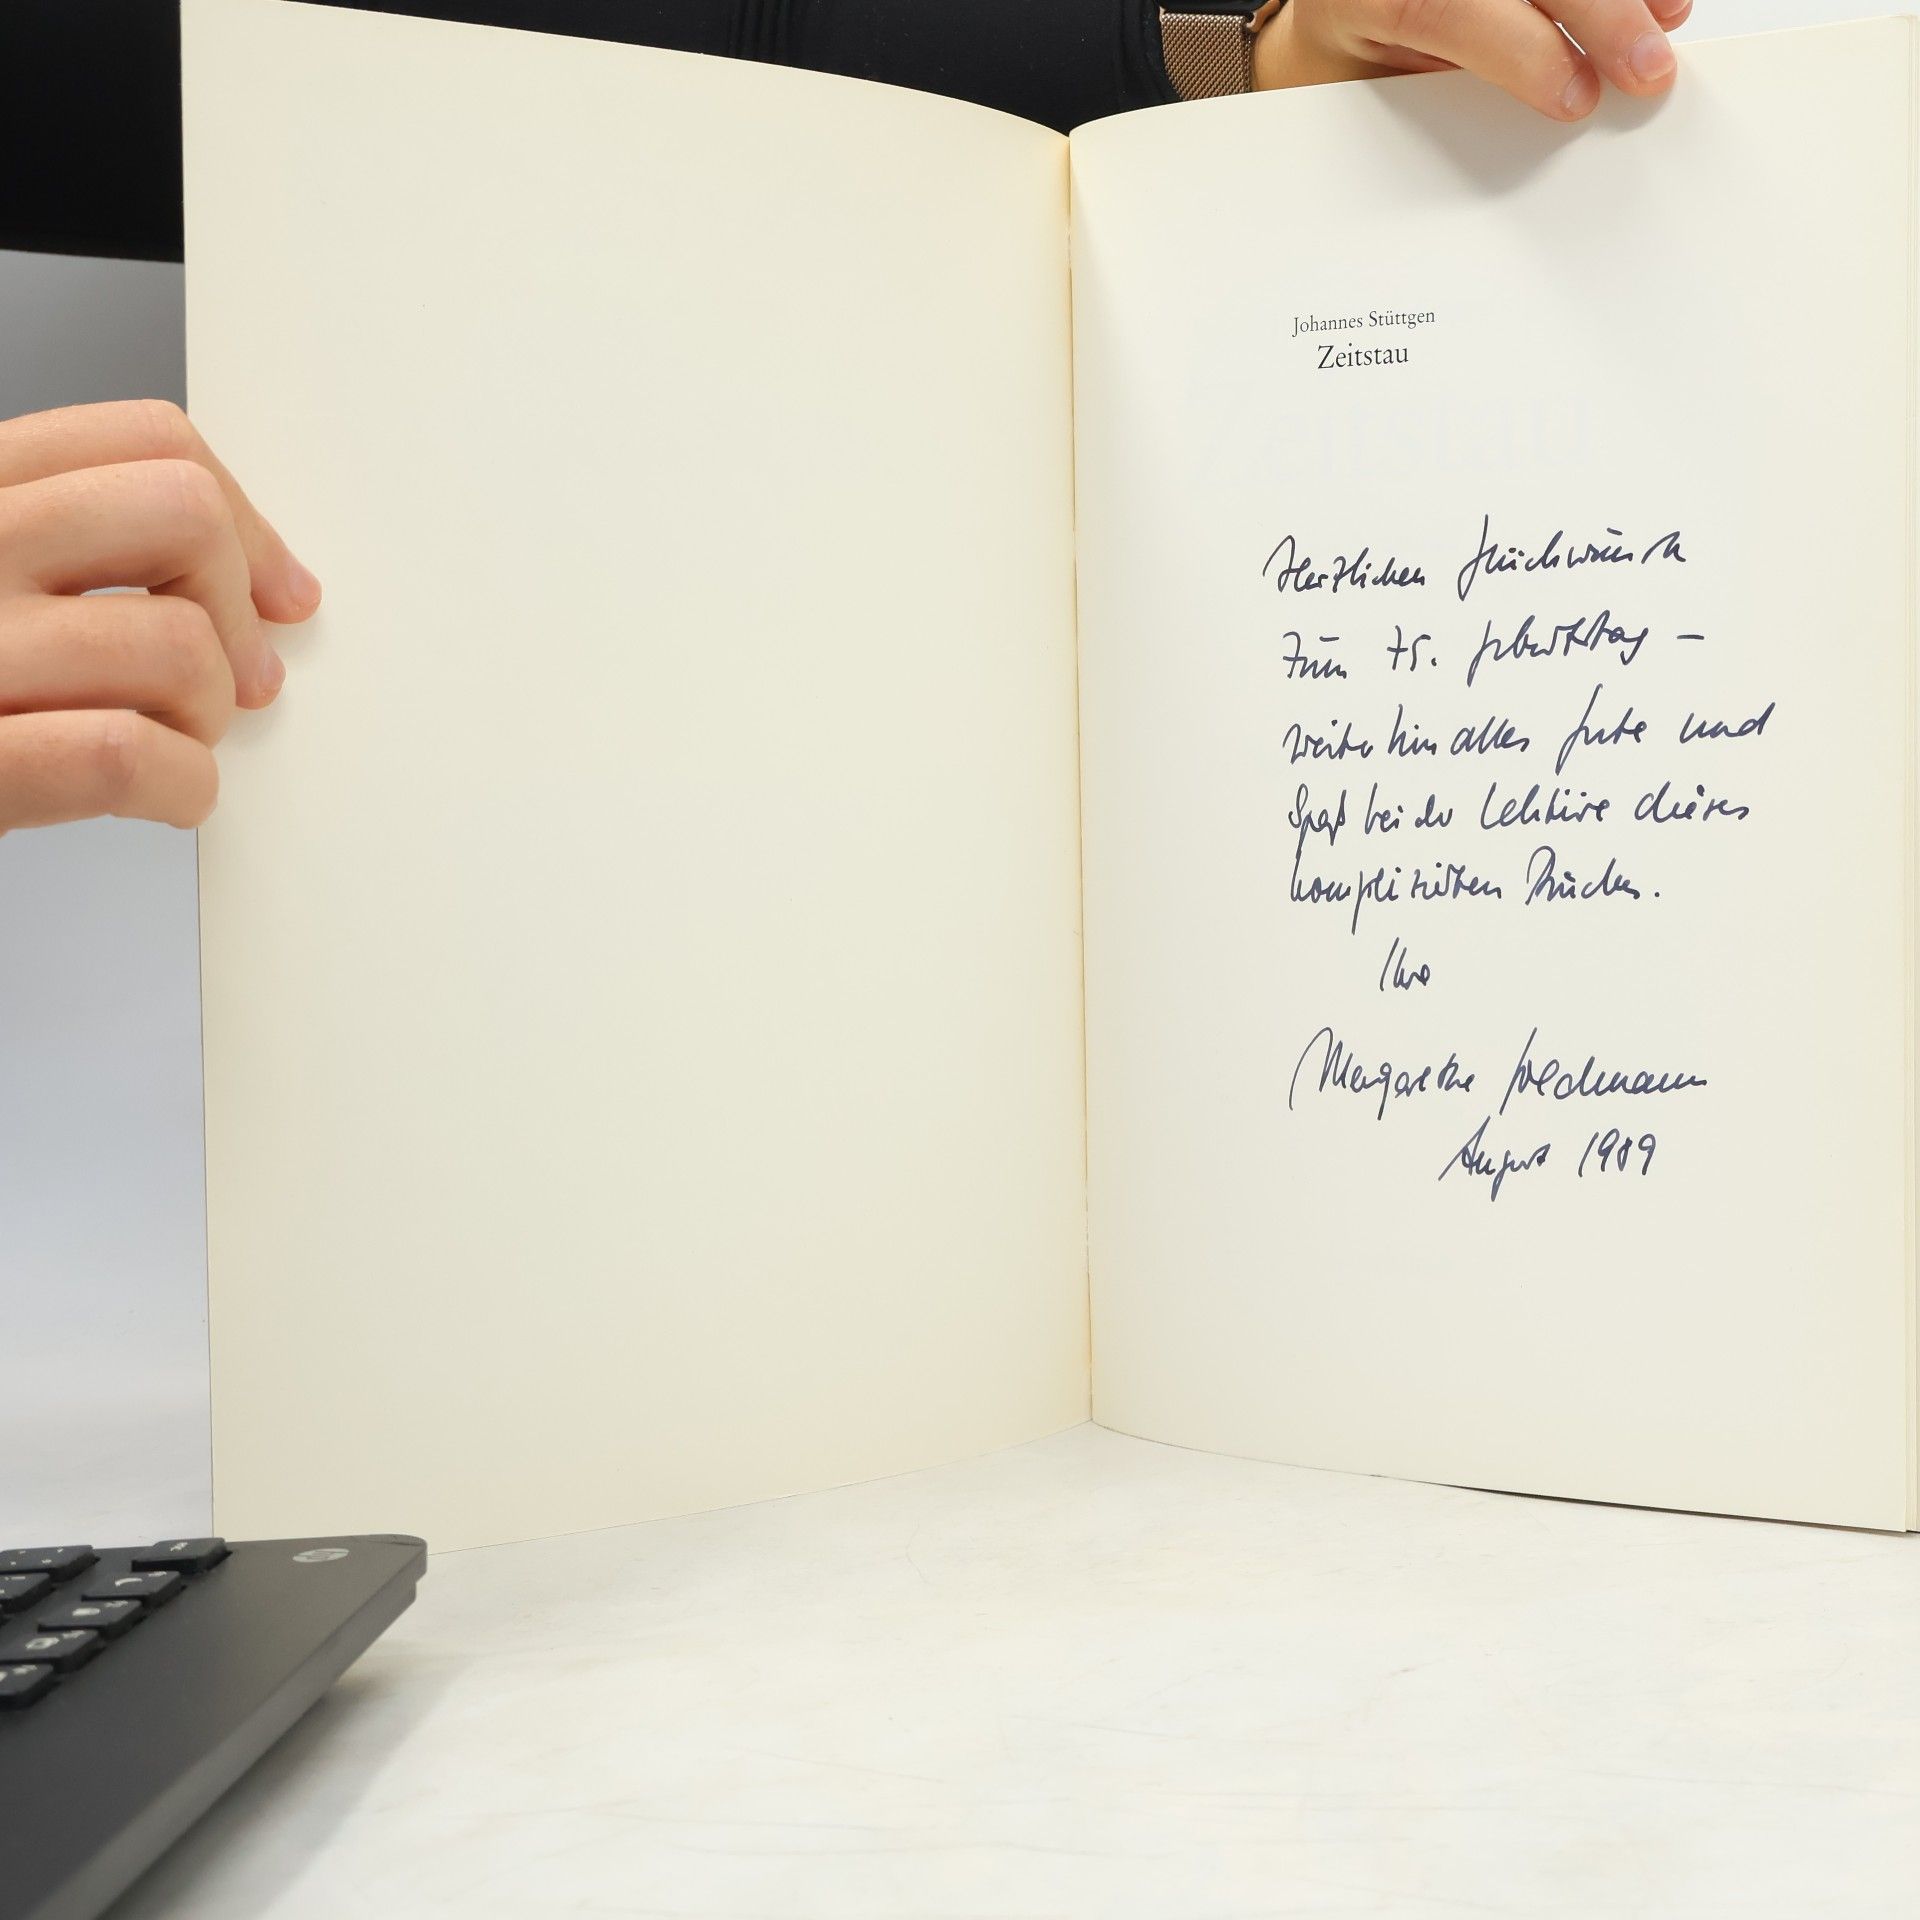 Johannes Stüttgen
Zeitstau
Herzlichen Glückwunsch
zum 75. Geburtstag –
weiterhin alles Gute und
Spaß bei der Lektüre dieses
komplizierten Buches.
Ihre
Margarethe
August 1989
hp